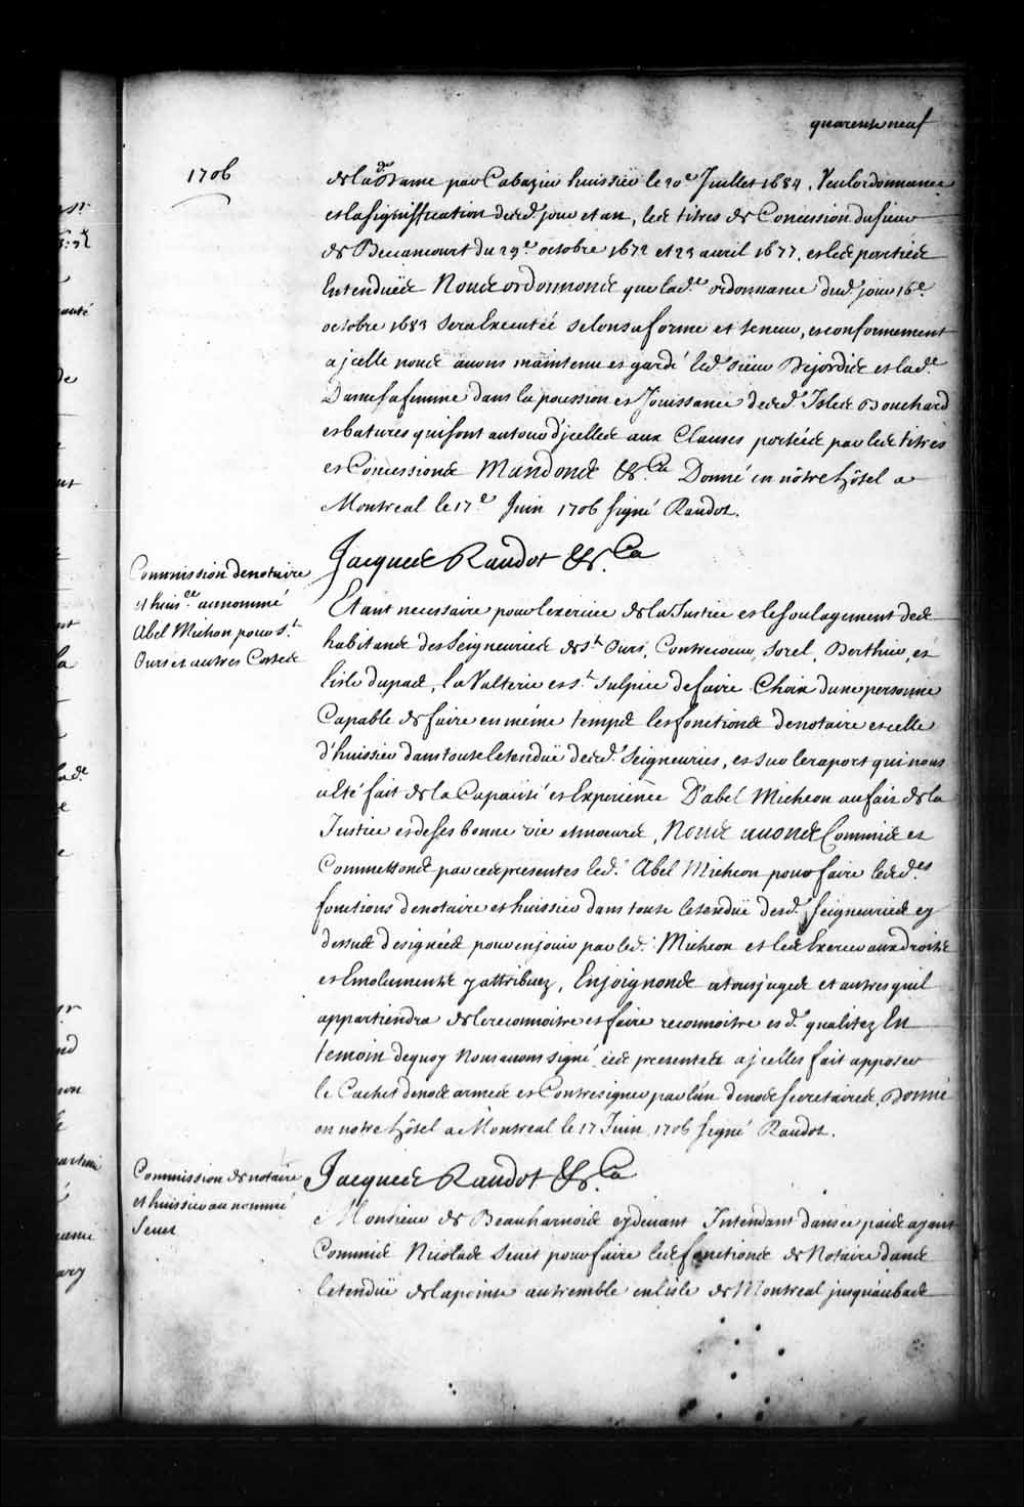 quarente neuf
1706
de lad.e Dame par Cabazier huissier le 20e Juillet 1684. Veu lordonnance
et la signiffication desd. jour et an, les titres de Concession du sieur
de Becancourt du 29e octobre 1672 et 23 avril 1677. et les parties
Entenduës Nous ordonnons que lad.e ordonnance dud. jour 16e
octobre 1683 sera Executée selon sa forme et teneur, et conformement
a jcelle nous avons maintenu et gardé led. sieur Dejordis et lad.e
Dame sa femme dans la possession et Jouissance desd. Isles Bouchard
et batures qui sont autour d'jcelles aux Clauses portées par les titres
et Concessions Mandons &.Ca Donné en nôtre hôtel a
Montreal le 17e Juin 1706 signé Raudot.
Commission de notaire
et huis.er au nommé
Abel Michon pour S.t
Ours et autres Costes
Jacques Raudot &.Ca
Etant necessaire pour lexercice de la Justice et le soulagement des
habitans des Seigneuries de S.t Ours, Contrecoeur, Sorel, Berthier, et
lisle dupas, la Valterie et S.t Sulpice de faire Choix dune personne
Capable de faire en même temps les fonctions de notaire et celle
d'huissier dans toute letenduë desd. Seigneuries, et sur le raport qui nous
a été fait de la Capacité et Experience D'abel Micheon au fait de la
Justice et de ses bonne vie et moeurs, Nous avons Commis et
Commettons par ces presentes led. Abel Micheon pour faire lesd.es
fonctions de notaire et huissier dans toute letenduë desd. seigneuries cy
dessus designées pour en jouir par led. Micheon et les Exercer aux droits
et Emolumens y attribuez, Enjoignons a tous juges et autres quil
appartiendra de le reconnoitre et faire reconnoitre esd. qualitez En
temoin dequoy Nous avons signé ces presentes a jcelles fait apposer
le Cachet de nos armes et Contresigner par l'un de nos secretaires. Donné
en notre hôtel a Montreal le 17 Juin 1706 signé Raudot.
Commission de notaire
et huissier au nommé
Senet
Jacques Raudot &.Ca
Monsieur de Beauharnois cydevant Intendant dans ce païs ayant
Commis Nicolas Senet pour faire les fonctions de Notaire dans
letenduë de la pointe au tremble en lisle de Montreal jusquau bas